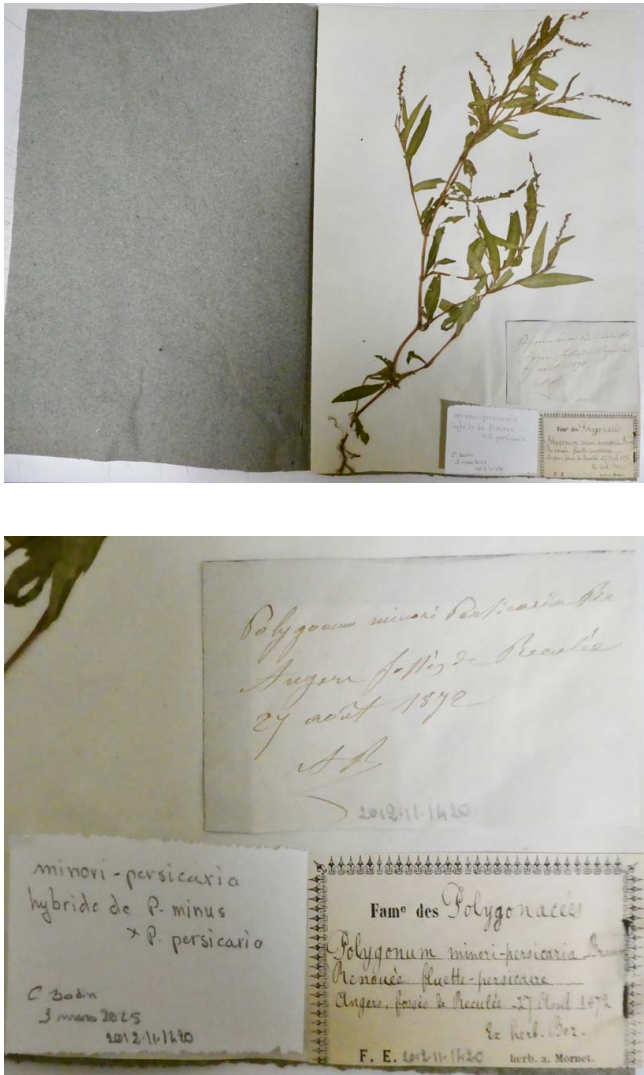 Polygonum minori Persicaria
Angers fossés de Reculée
27 août 1872
AB
2012-11-1420
minori-persicaria
hybride de P. minus
× P. persicaria
C Bodin
3 mars 2025
2012-11-1420
Fam.e des Polygonacées
Polygonum minori-persicaria Braun
Renouée fluette-persicaire
Angers, fossés de Reculée 27 Août 1872
Ex herb. Bor.
F. E. 2012-11-1420 herb. a. Mornet.